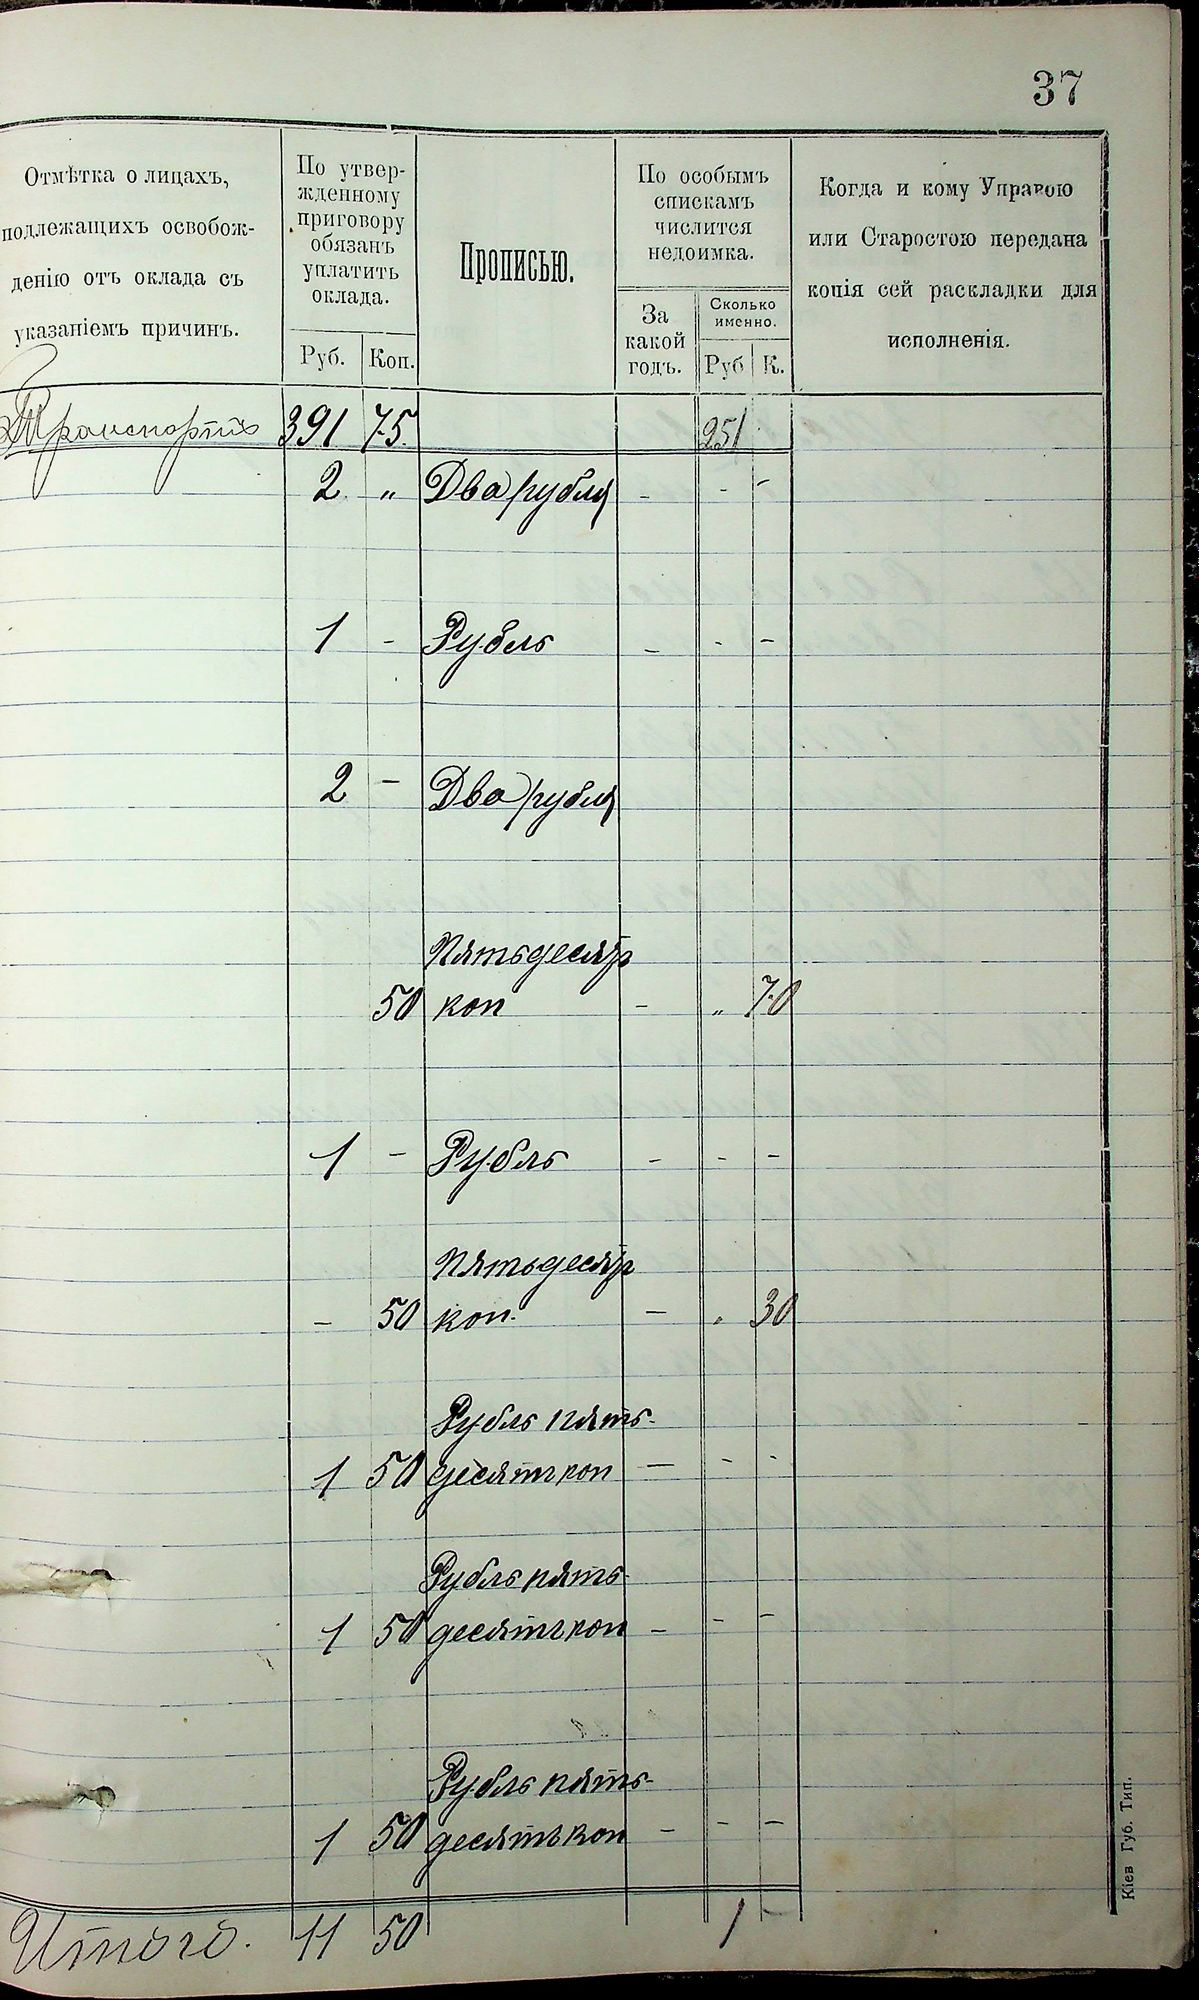 37
Отмѣтка о лицахъ,
подлежащихъ освобож-
денію отъ оклада съ
указаніемъ причинъ.
По утвер-
жденному
приговору
обязанъ
уплатить
оклада.
Руб. Коп.
Прописью.
По особымъ
спискамъ
числится
недоимка.
За
какой
годъ.
Сколько
именно.
Руб К.
Когда и кому Управою
или Старостою передана
копія сей раскладки для
исполненія.
Транспортъ 391 75 251
2 „ Два рубля - - -
1 - Рубль - - -
2 - Два рубля
Пятьдесятъ
50 коп - „ 70
1 - Рубль - - -
Пятьдесятъ
- 50 коп. - „ 30
Рубль пять-
1 50 десятъ коп - - -
Рубль пять-
1 50 десятъ коп - - -
Рубль пять-
1 50 десятъ коп - - -
Итого. 11 50 1 -
Кіев Губ. Тип.